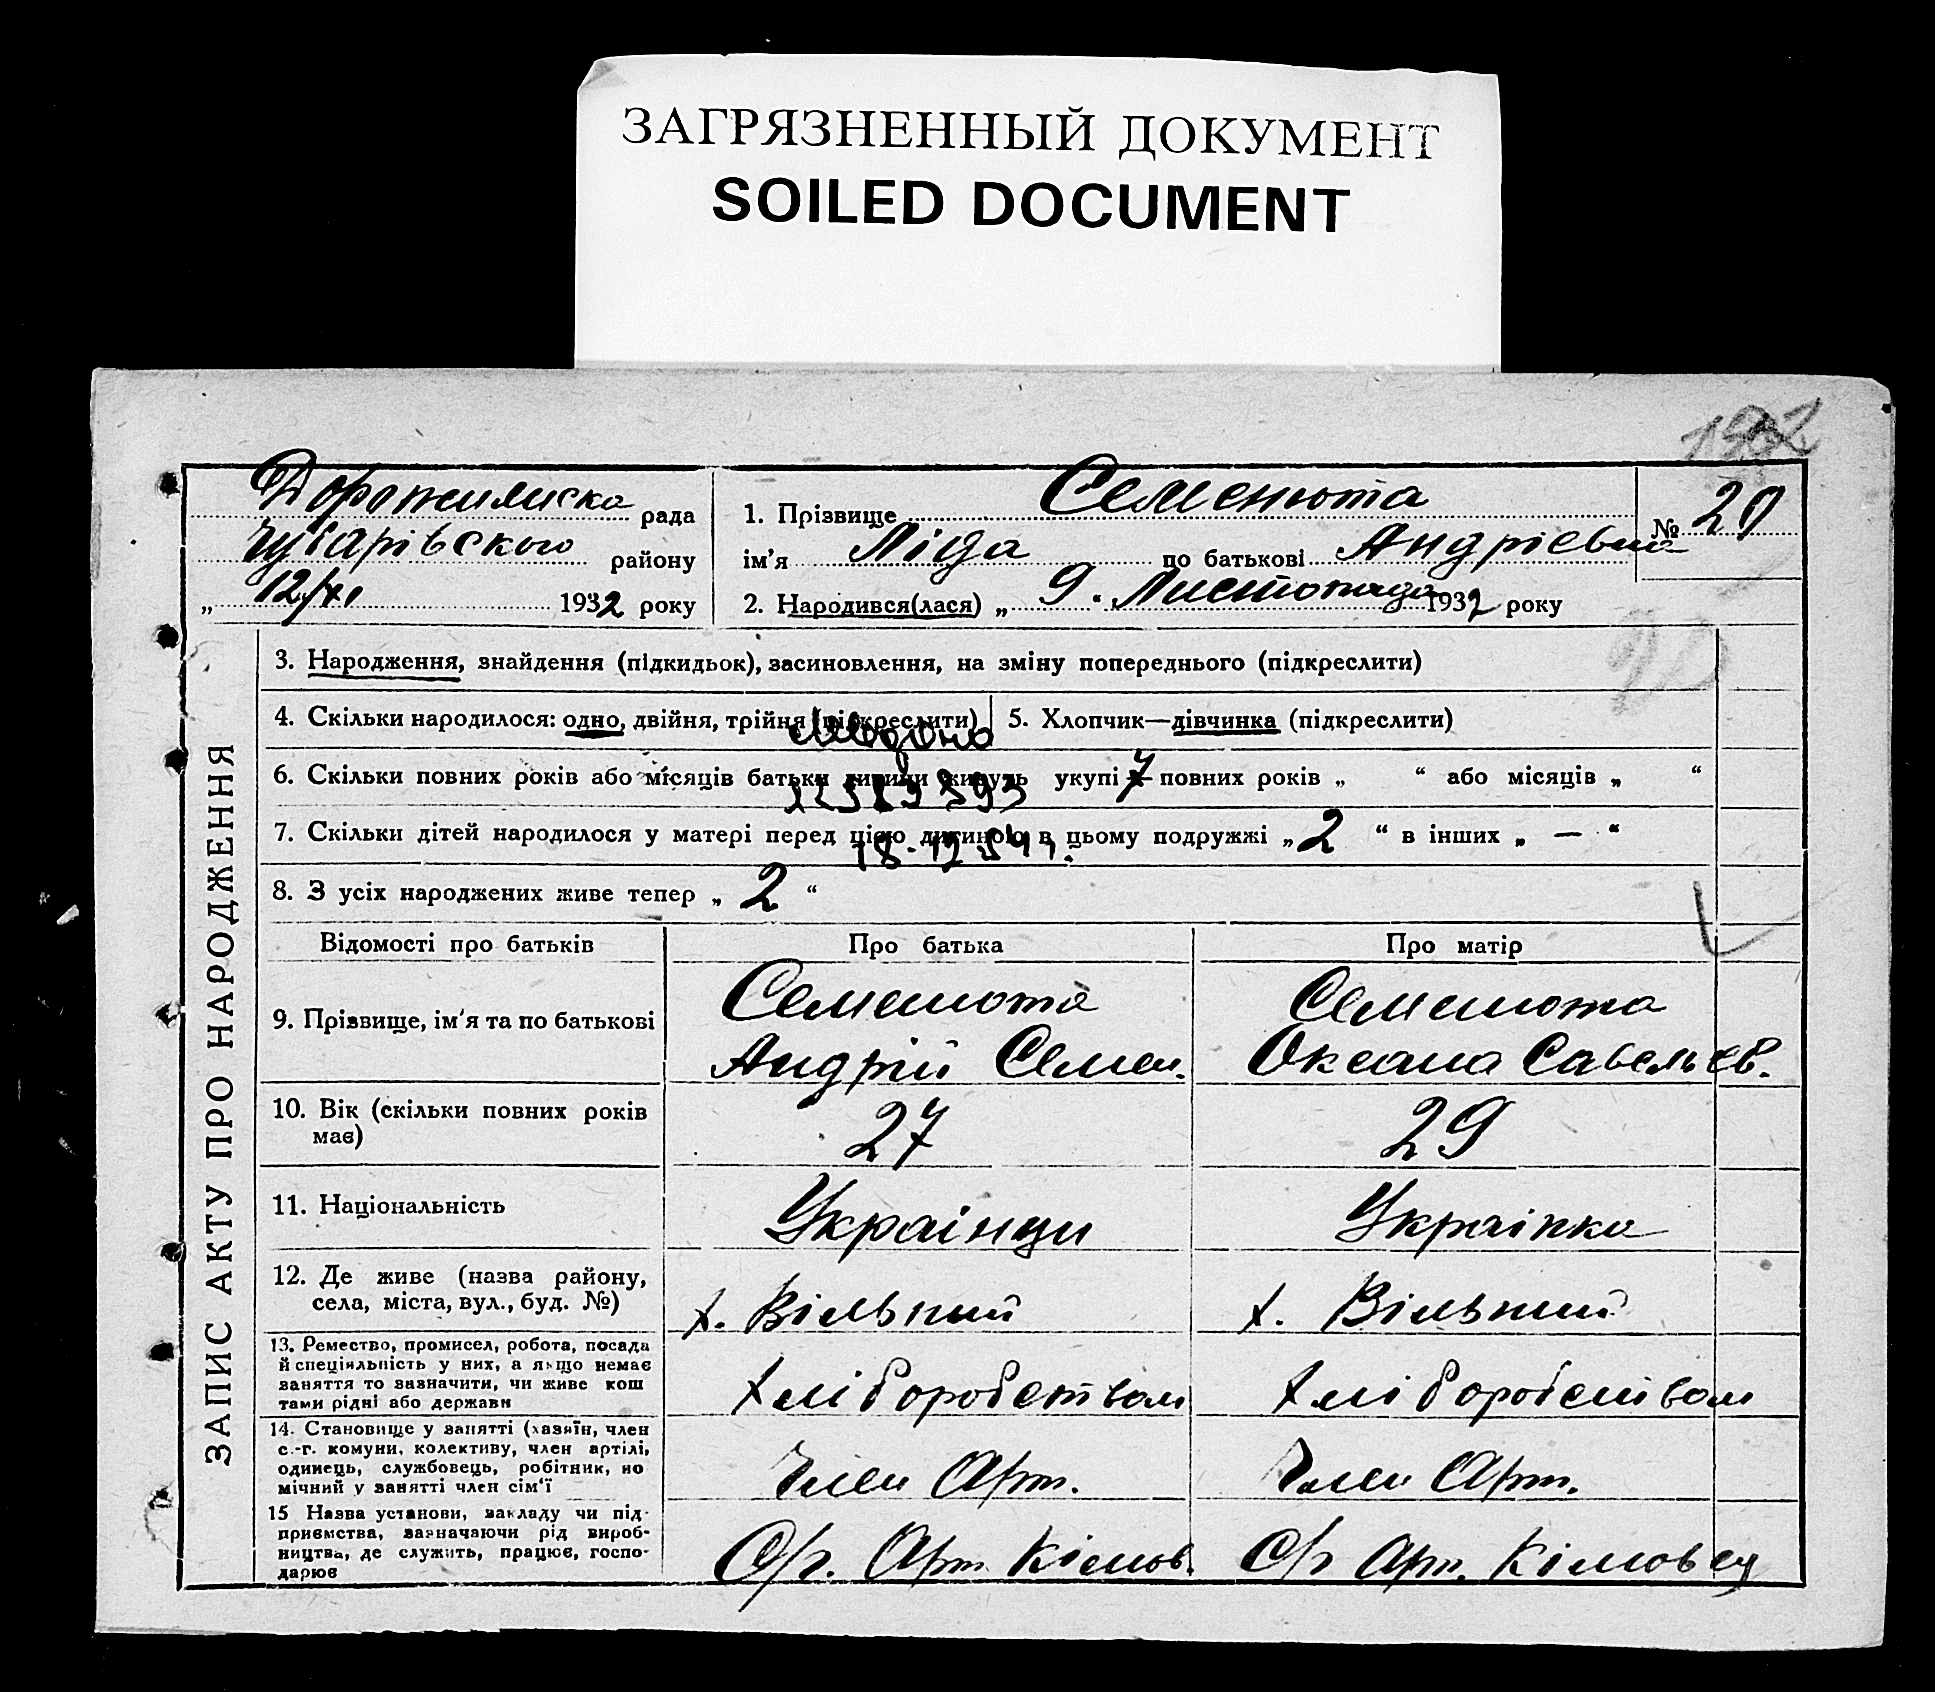 ЗАГРЯЗНЕННЫЙ ДОКУМЕНТ
SOILED DOCUMENT
рада
Чубарівського району
„ 12/XI 1932 року
1. Прізвище Семенюта
№ 20
ім'я Ліда по батькові Андрієвна
2. Народився(лася) „ 9. Листопада 1932 року
20
ЗАПИС АКТУ ПРО НАРОДЖЕННЯ
3. Народження, знайдення (підкидьок), засиновлення, на зміну попереднього (підкреслити)
4. Скільки народилося: одно, двійня, трійня (підкреслити)
5. Хлопчик—дівчинка (підкреслити)
6. Скільки повних років або місяців батьки дитини живуть укупі 7 повних років „ “ або місяців „ “
7. Скільки дітей народилося у матері перед цією дитиною в цьому подружжі „ 2 “ в інших „ — “
8. З усіх народжених живе тепер „ 2 “
Відомості про батьків
Про батька
Про матір
9. Прізвище, ім'я та по батькові
Семенюта
Андрій Семен.
Семенюта
Оксана Савельєв.
10. Вік (скільки повних років
має)
27
29
11. Національність
Українци
Українка
12. Де живе (назва району,
села, міста, вул., буд. №)
х. Вільний
х. Вільний
13. Ремество, промисел, робота, посада
й спеціяльність у них, а якщо немає
заняття то зазначити, чи живе кош
тами рідні або держави
Хліборобством
Хліборобством
14. Становище у занятті (хазяїн, член
с.-г. комуни, колективу, член артілі,
одинець, службовець, робітник, по
мічний у занятті член сім'ї
Член Арт.
Член Арт.
15 Назва установи, закладу чи під-
приємства, зазначаючи рід вироб-
ництва, де служить, працює, госпо-
дарює
С/г. Арт. Кімов.
С/г Арт. Кімовец